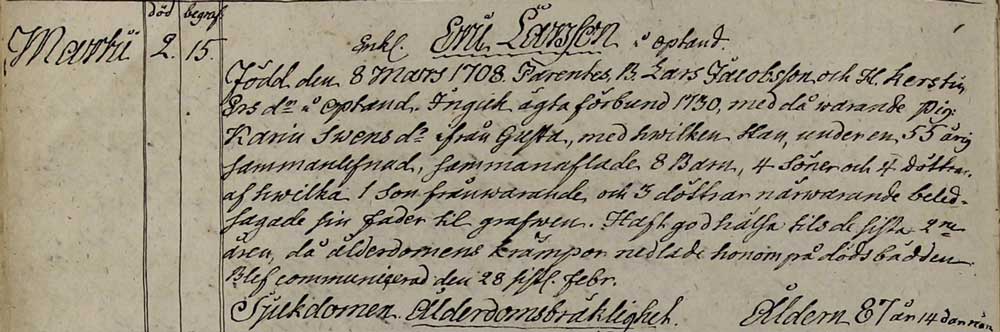 död begraf.
Martii 2. 15. Enkl. Eric Larsson i Optand.
Född den 8 Mars 1708. Parentes B. Lars Jacobsson och H. Kerstin
Ers dr i Optand. Ingick ägta förbund 1730, med då warande Pig:
Karin Swens dr ifrån Gusta, med hwilken Han, under en 55 årig
sammanlefnad, sammanaflade 8 Barn, 4 söner och 4 döttrar.
af hwilka 1 son frånwarande och 3 döttrar närwarande beled-
sagade sin fader til grafwen. Haft god hälsa tils de sista 2ne
åren, då ålderdomens krämpor nedlade honom på dödsbädden.
Blef communicerad den 28 sistl. Febr.
Sjukdomen Ålderdomsbräklighet. Åldern 87 år 14 dar när.